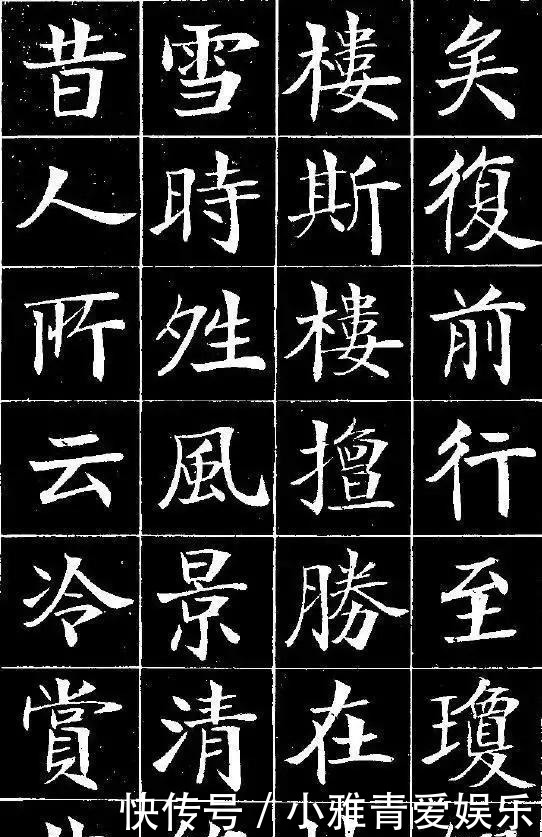 矣復前行至瓊
樓斯樓擅勝在
雪時殅風景清
昔人所云冷賞
快传号 / 小雅青爱娱乐